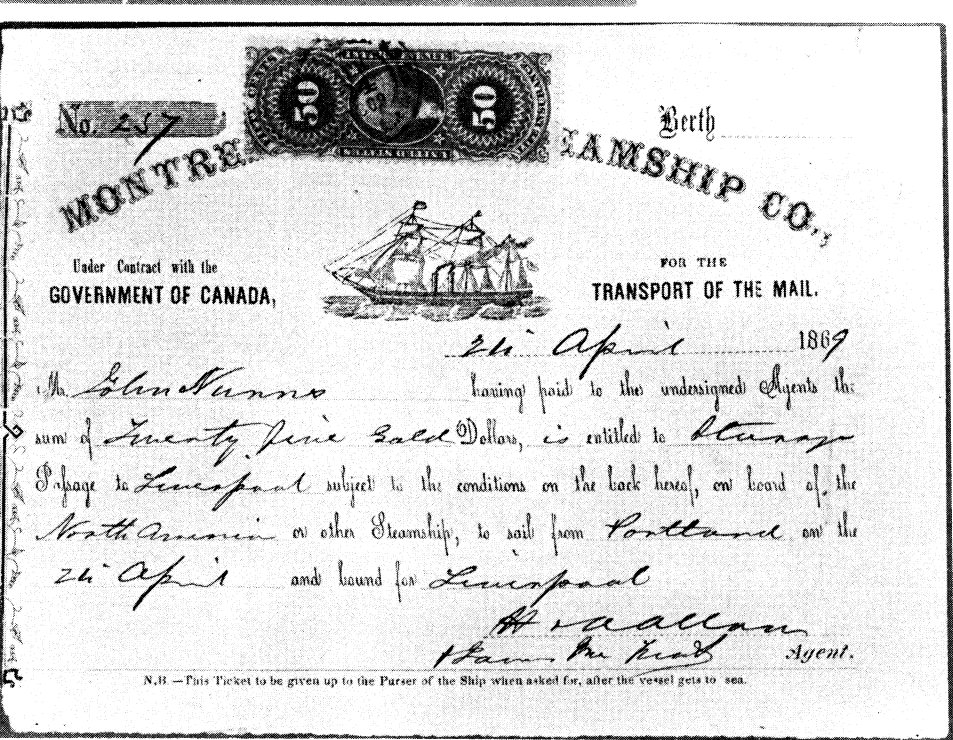 No. 237
50 50
Berth
MONTRE EAMSHIP CO.,
Under Contract with the
GOVERNMENT OF CANADA,
FOR THE
TRANSPORT OF THE MAIL.
24 April 1869
Mr. John Nunns having paid to the undersigned Agents the
sum of Twenty five Gold Dollars, is entitled to Steerage
Passage to Liverpool subject to the conditions on the back hereof, on board of the
North American or other Steamship, to sail from Portland on the
24 April and bound for Liverpool
H & A Allan
Agent.
N.B.—This Ticket to be given up to the Purser of the Ship when asked for, after the vessel gets to sea.